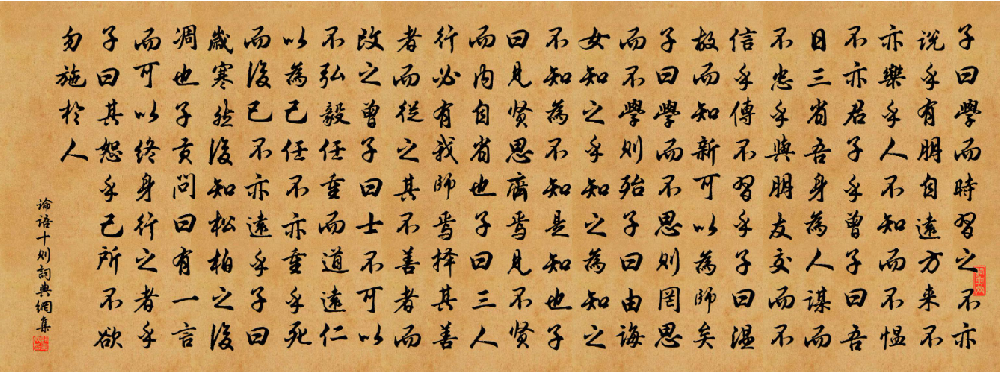 子曰學而時習之不亦
説乎有朋自遠方来不
亦樂乎人不知而不愠
不亦君子乎曾子曰吾
日三省吾身為人謀而
不忠乎與朋友交而不
信乎傳不習乎子曰温
故而知新可以為師矣
子曰學而不思則罔思
而不學则殆子曰由誨
女知之乎知之為知之
不知為不知是知也子
曰見贤思齊焉見不贤
而内自省也子曰三人
行必有我師焉择其善
者而從之其不善者而
改之曾子曰士不可以
不弘毅任重而道遠仁
以為己任不亦重乎死
而後已不亦遠乎子曰
歲寒然後知松柏之後
凋也子貢問曰有一言
而可以終身行之者乎
子曰其恕乎己所不欲
勿施於人
論語十则詞典網集